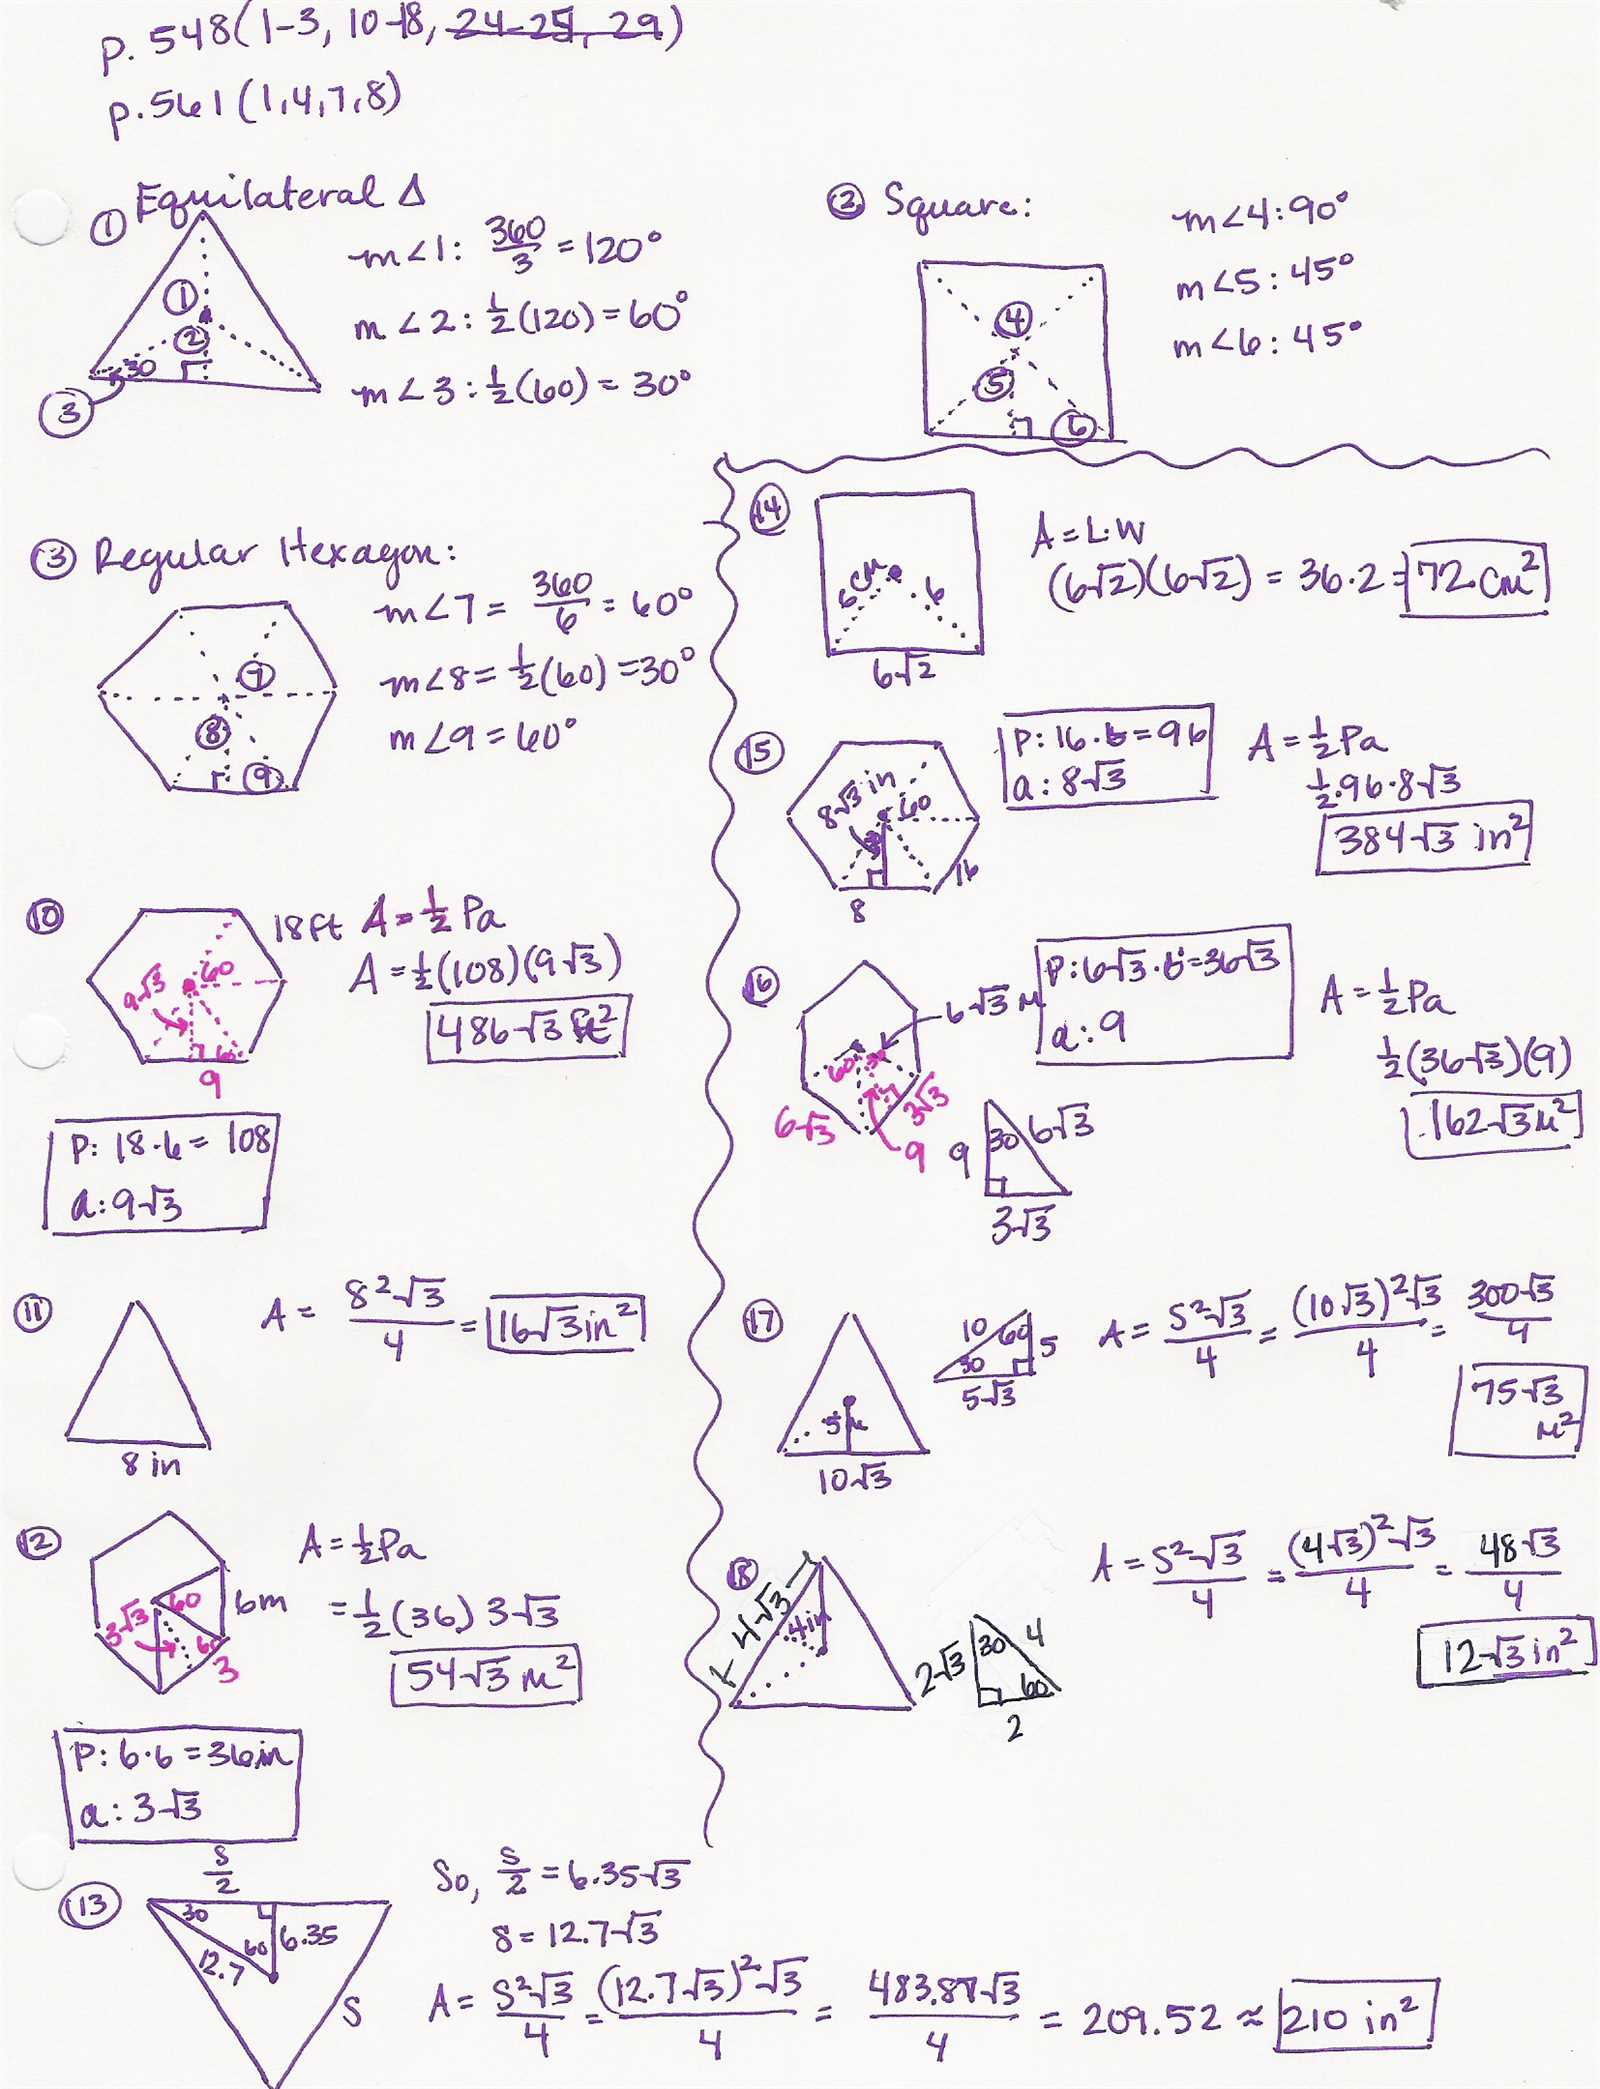 p. 548(1-3, 10-18, 24-25, 29)
p. 561 (1,4,7,8)
① Equilateral Δ
①
②
30
③
m∠1: 360/3 = 120°
m∠2: 1/2(120) = 60°
m∠3: 1/2(60) = 30°
② Square:
④
⑤
⑥
m∠4: 90°
m∠5: 45°
m∠6: 45°
③ Regular Hexagon:
⑦
⑧
⑨
m∠7 = 360/6 = 60°
m∠8 = 1/2(60) = 30°
m∠9 = 60°
⑩
18ft
9√3
60
60
9
A = 1/2 Pa
A = 1/2(108)(9√3)
486√3 ft²
P: 18·6 = 108
a: 9√3
⑪
8 in
A = 8²√3/4 = 16√3 in²
⑫
60
6m
3√3
60
3
A = 1/2 Pa
= 1/2(36) 3√3
54√3 m²
P: 6·6 = 36 in
a: 3√3
⑬
s/2
30
60
6.35
12.7
S
So, s/2 = 6.35√3
s = 12.7√3
A = S²√3/4 = (12.7√3)²√3/4 = 483.87√3/4 = 209.52 ≈ 210 in²
⑭
6 cm
6
6√2
A = L·W
(6√2)(6√2) = 36·2 = 72 cm²
⑮
8√3 in
60
30
16
8
P: 16·6 = 96
a: 8√3
A = 1/2 Pa
1/2·96·8√3
384√3 in²
⑯
6√3 M
60
30
6√3
3√3
9
9
30
6√3
3√3
P: 6√3·6 = 36√3
a: 9
A = 1/2 Pa
1/2(36√3)(9)
162√3 M²
⑰
5 M
10√3
10
60
5
30
5√3
A = S²√3/4 = (10√3)²√3/4 = 300√3/4
75√3
M²
⑱
4√3
4 in
2√3
30
4
60
2
A = S²√3/4 = (4√3)²√3/4 = 48√3/4
12√3 in²